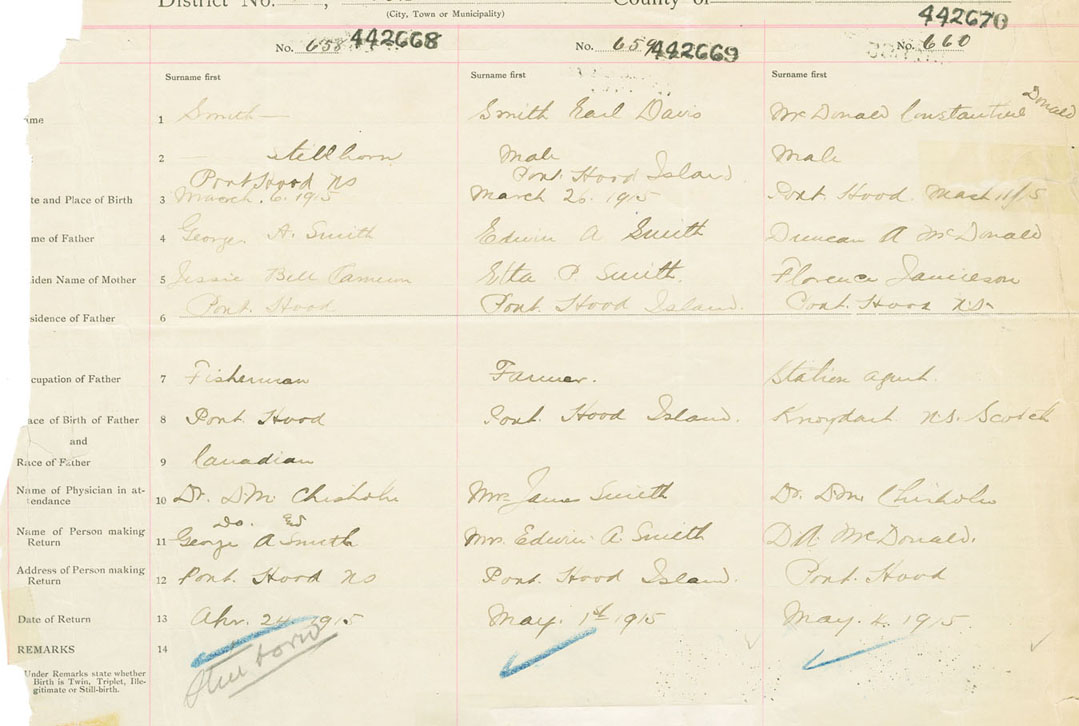 District No. , County of
(City, Town or Municipality)
No. 658 442668 No. 659 442669 No. 660 442670
Surname first Surname first Surname first
me 1 Smith — Smith Earl Davis McDonald Constantine Donald
2 — Stillborn Male Male
Port Hood NS Port Hood Island
te and Place of Birth 3 March. 6. 1915 March 20. 1915 Port Hood. 1915
me of Father 4 George A. Smith Edwin A Smith Duncan A McDonald
iden Name of Mother 5 Jessie Bell Cameron Etta P. Smith. Florence Jamieson
sidence of Father 6 Port. Hood Port Hood Island. Port. Hood N.S.
cupation of Father 7 Fisherman Farmer. Station agent.
ace of Birth of Father 8 Port. Hood Port. Hood Island. Knoydart N.S. Scotch
and
Race of Father 9 Canadian
Name of Physician in at-
tendance 10 Dr. D.M. Chisholm Mrs James Smith Dr. D.M. Chisholm
Do.
Name of Person making
Return 11 George A Smith Mrs. Edwin A. Smith D.A. McDonald.
Address of Person making
Return 12 Port. Hood NS Port. Hood Island. Port. Hood
Date of Return 13 Apr. 24. 1915 May. 1st 1915 May. 4. 1915.
REMARKS 14
Still born
Under Remarks state whether
Birth is Twin, Triplet, Ille-
gitimate or Still-birth.